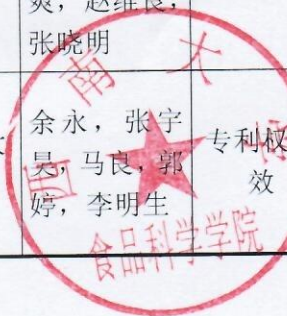 爽，赵维良，
张晓明
余永，张宇
昊，马良，郭
婷，李明生
专利权
效
西南大
食品科学学院